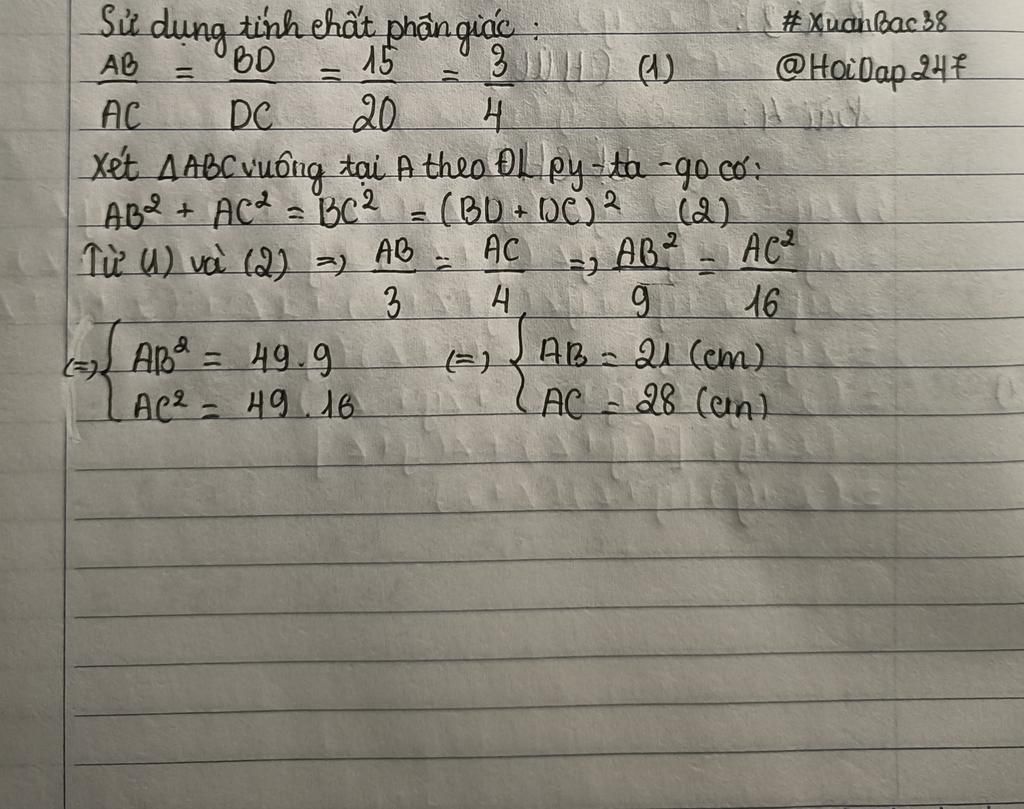 Sử dụng tính chất phân giác :
#XuanBac38
AB/AC = BD/DC = 15/20 = 3/4 (1)
@HoiDap247
Xét ΔABC vuông tại A theo ĐL py-ta-go có:
AB² + AC² = BC² = (BD + DC)² (2)
Từ (1) và (2) => AB/3 = AC/4 => AB²/9 = AC²/16
(=) { AB² = 49.9 (=) { AB = 21 (cm)
AC² = 49.16 AC = 28 (cm)